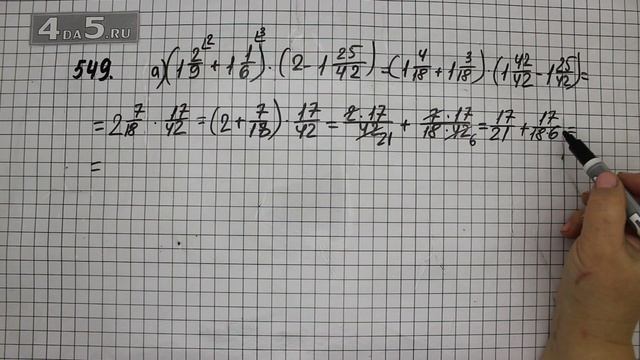 4DA5.RU
549. а) (1 2/9 ⌊2 + 1 1/6 ⌊3) · (2 - 1 25/42) = (1 4/18 + 1 3/18) · (1 42/42 - 1 25/42) =
= 2 7/18 · 17/42 = (2 + 7/18) · 17/42 = 2·17/42 21 + 7·17/18·42 6 = 17/21 + 17/18·6 =
=